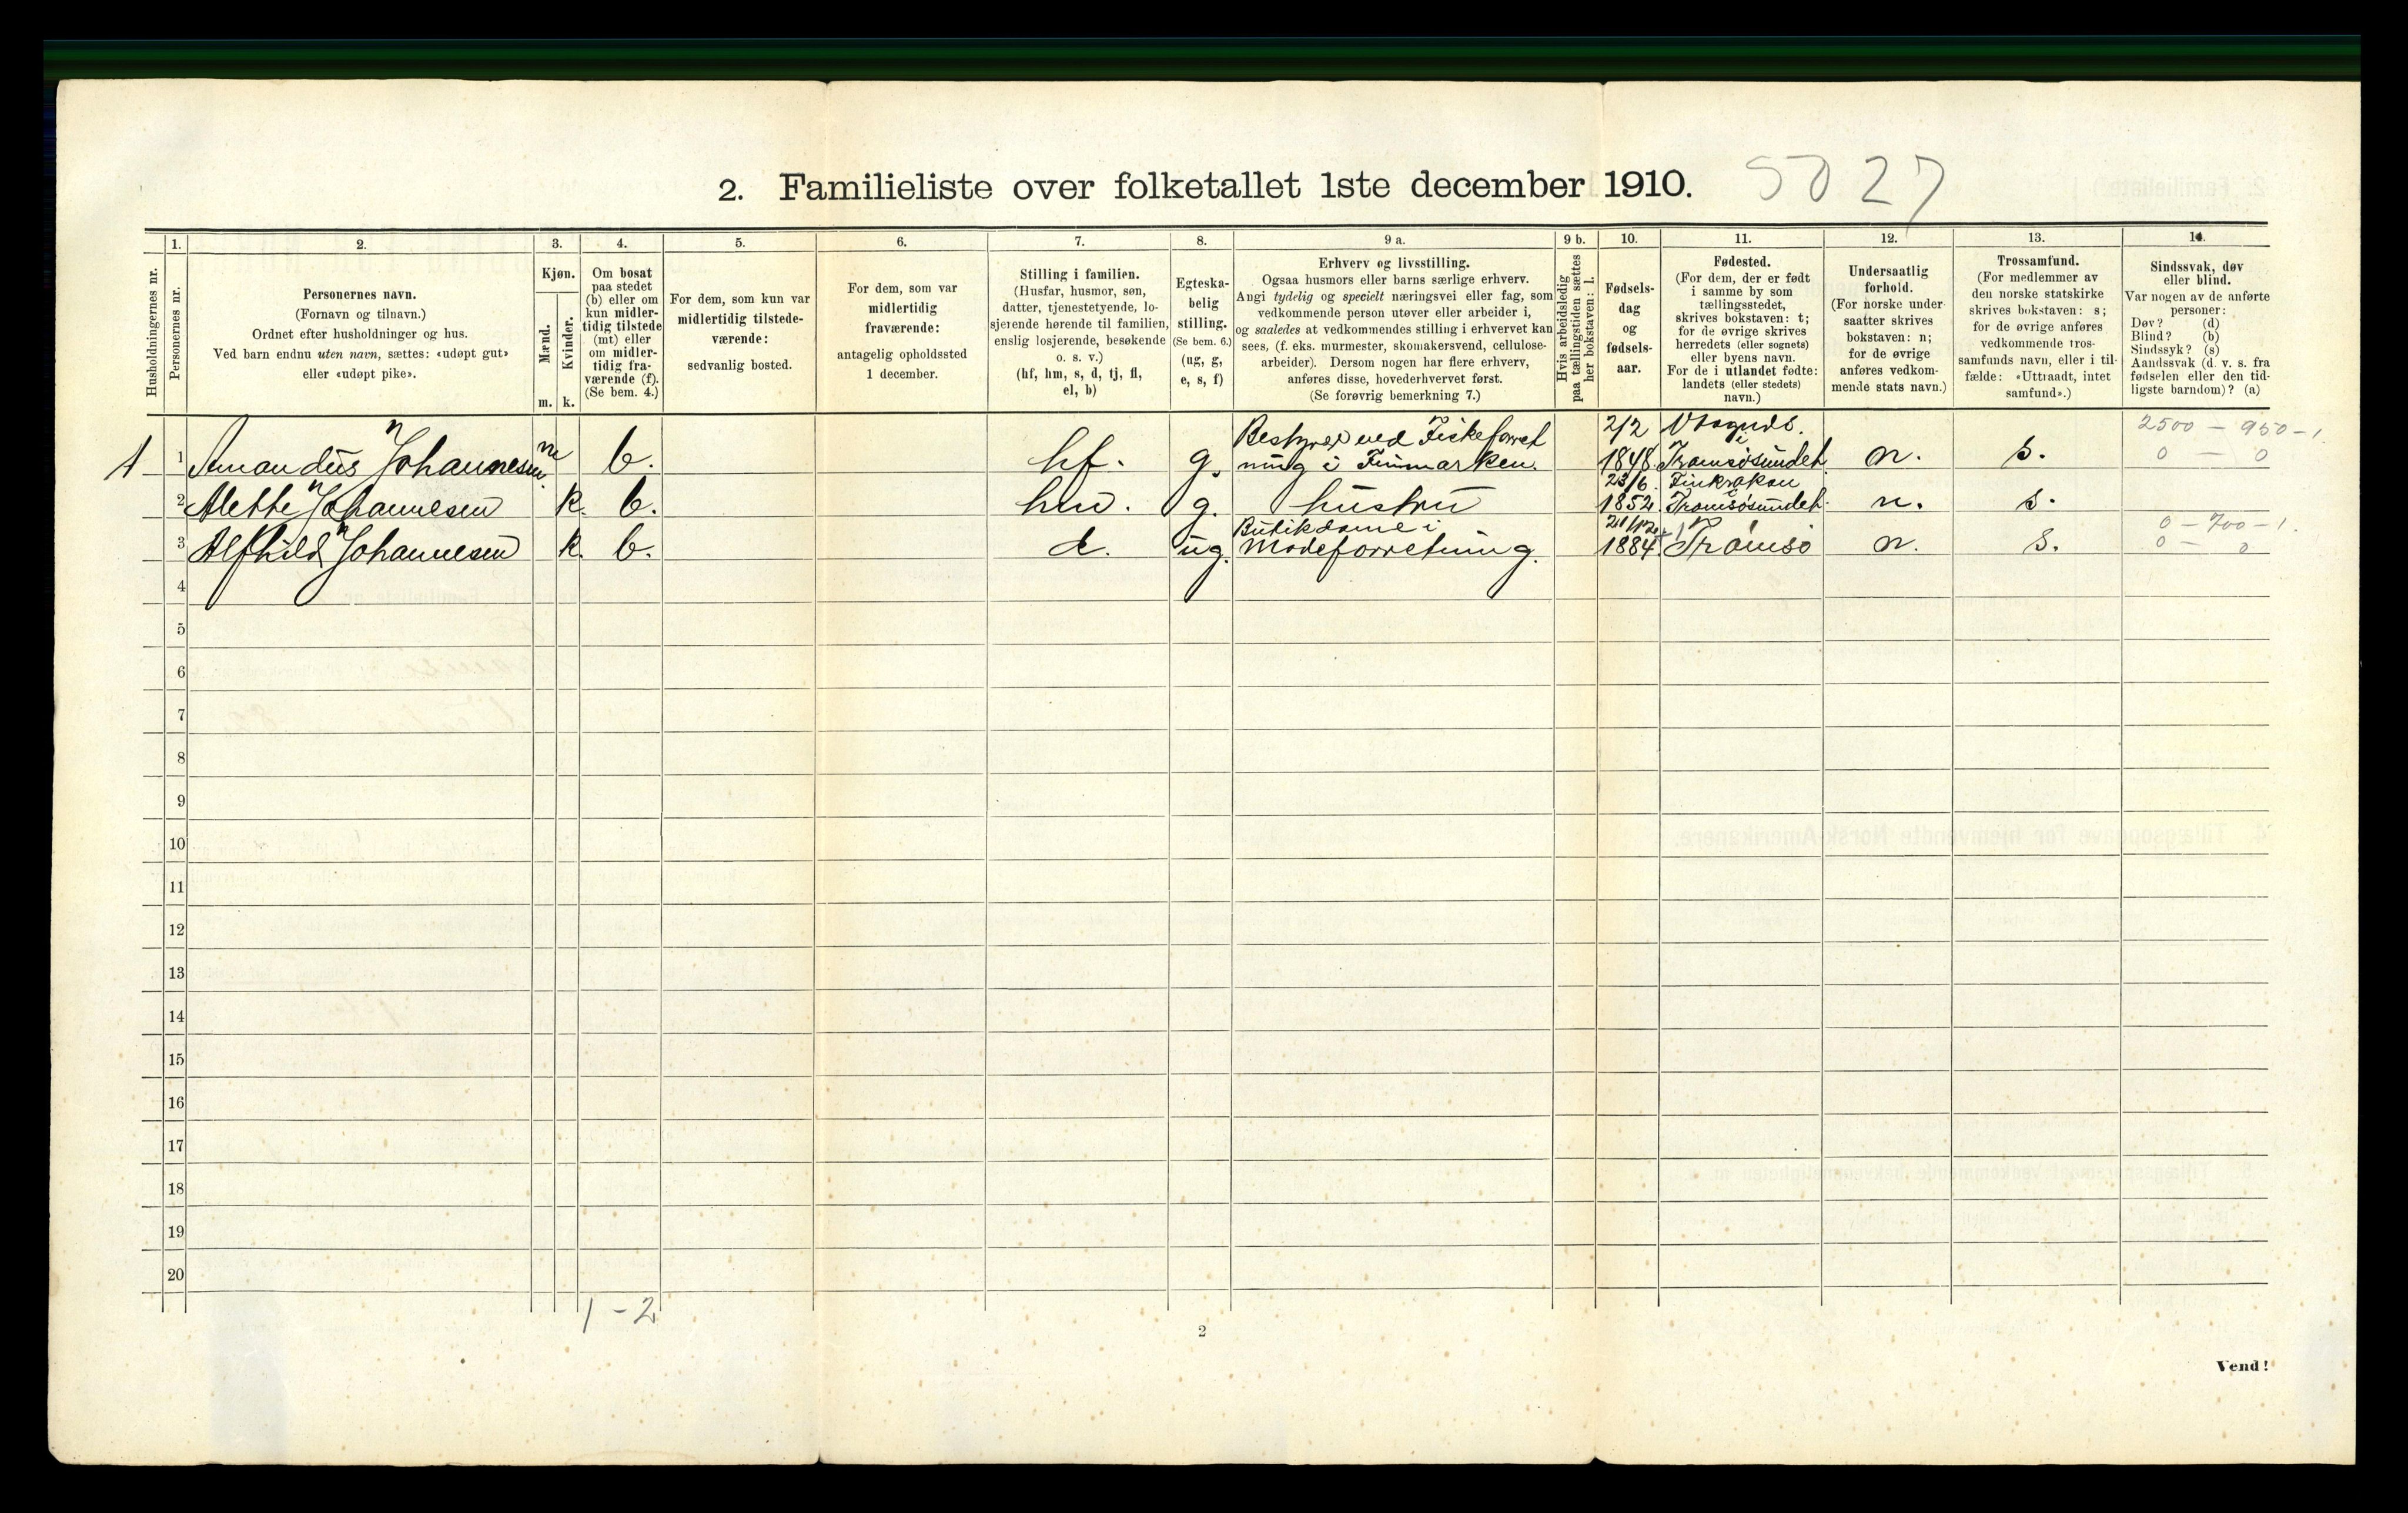 2. Familieliste over folketallet 1ste december 1910. 5027
1. 2. 3. 4. 5. 6. 7. 8. 9 a. 9 b. 10. 11. 12. 13. 14.
Husholdningernes nr.
Personernes nr.
Personernes navn.
(Fornavn og tilnavn.)
Ordnet efter husholdninger og hus.
Ved barn endnu uten navn, sættes: «udøpt gut»
eller «udøpt pike».
Kjøn.
Mænd.
Kvinder.
m. k.
Om bosat
paa stedet
(b) eller om
kun midler-
tidig tilstede
(mt) eller
om midler-
tidig fra-
værende (f).
(Se bem. 4.)
For dem, som kun var
midlertidig tilstede-
værende:
sedvanlig bosted.
For dem, som var
midlertidig
fraværende:
antagelig opholdssted
1 december.
Stilling i familien.
(Husfar, husmor, søn,
datter, tjenestetyende, lo-
sjerende hørende til familien,
enslig losjerende, besøkende
o. s. v.)
(hf, hm, s, d, tj, fl,
el, b)
Egteska-
belig
stilling.
(Se bem. 6.)
(ug, g,
e, s, f)
Erhverv og livsstilling.
Ogsaa husmors eller barns særlige erhverv.
Angi tydelig og specielt næringsvei eller fag, som
vedkommende person utøver eller arbeider i,
og saaledes at vedkommendes stilling i erhvervet kan
sees, (f. eks. murmester, skomakersvend, cellulose-
arbeider). Dersom nogen har flere erhverv,
anføres disse, hovederhvervet først.
(Se forøvrig bemerkning 7.)
Hvis arbeidsledig
paa tællingstiden sættes
her bokstaven: l.
Fødsels-
dag
og
fødsels-
aar.
Fødested.
(For dem, der er født
i samme by som
tællingsstedet,
skrives bokstaven: t;
for de øvrige skrives
herredets (eller sognets)
eller byens navn.
For de i utlandet fødte:
landets (eller stedets)
navn.)
Undersaatlig
forhold.
(For norske under-
saatter skrives
bokstaven: n;
for de øvrige
anføres vedkom-
mende stats navn.)
Trossamfund.
(For medlemmer av
den norske statskirke
skrives bokstaven: s;
for de øvrige anføres
vedkommende tros-
samfunds navn, eller i til-
fælde: «Uttraadt, intet
samfund».)
Sindssvak, døv
eller blind.
Var nogen av de anførte
personer:
Døv? (d)
Blind? (b)
Sindssyk? (s)
Aandssvak (d. v. s. fra
fødselen eller den tid-
ligste barndom)? (a)
Bestyrer ved Fiskeforret 2/2 2500 – 950 – 1.
1 1 Amandus Johannesen m b. hf. g. ning i Finmarken. 1848. i Tromsøsundet n. s. 0 – 0
23/6. Finkroken
2 Alette Johannesen k. b. hm. g. hustru 1852 i Tromsøsundet. n. s.
Butikdame i 21/12 0 – 700 – 1.
3 Alfhild Johannesen k. b. d. ug. Modeforretning. 1884 Tromsø n. s. 0 – 0
4
5
6
7
8
9
10
11
12
13
14
15
16
17
18
19
20
1 – 2
2
Vend!